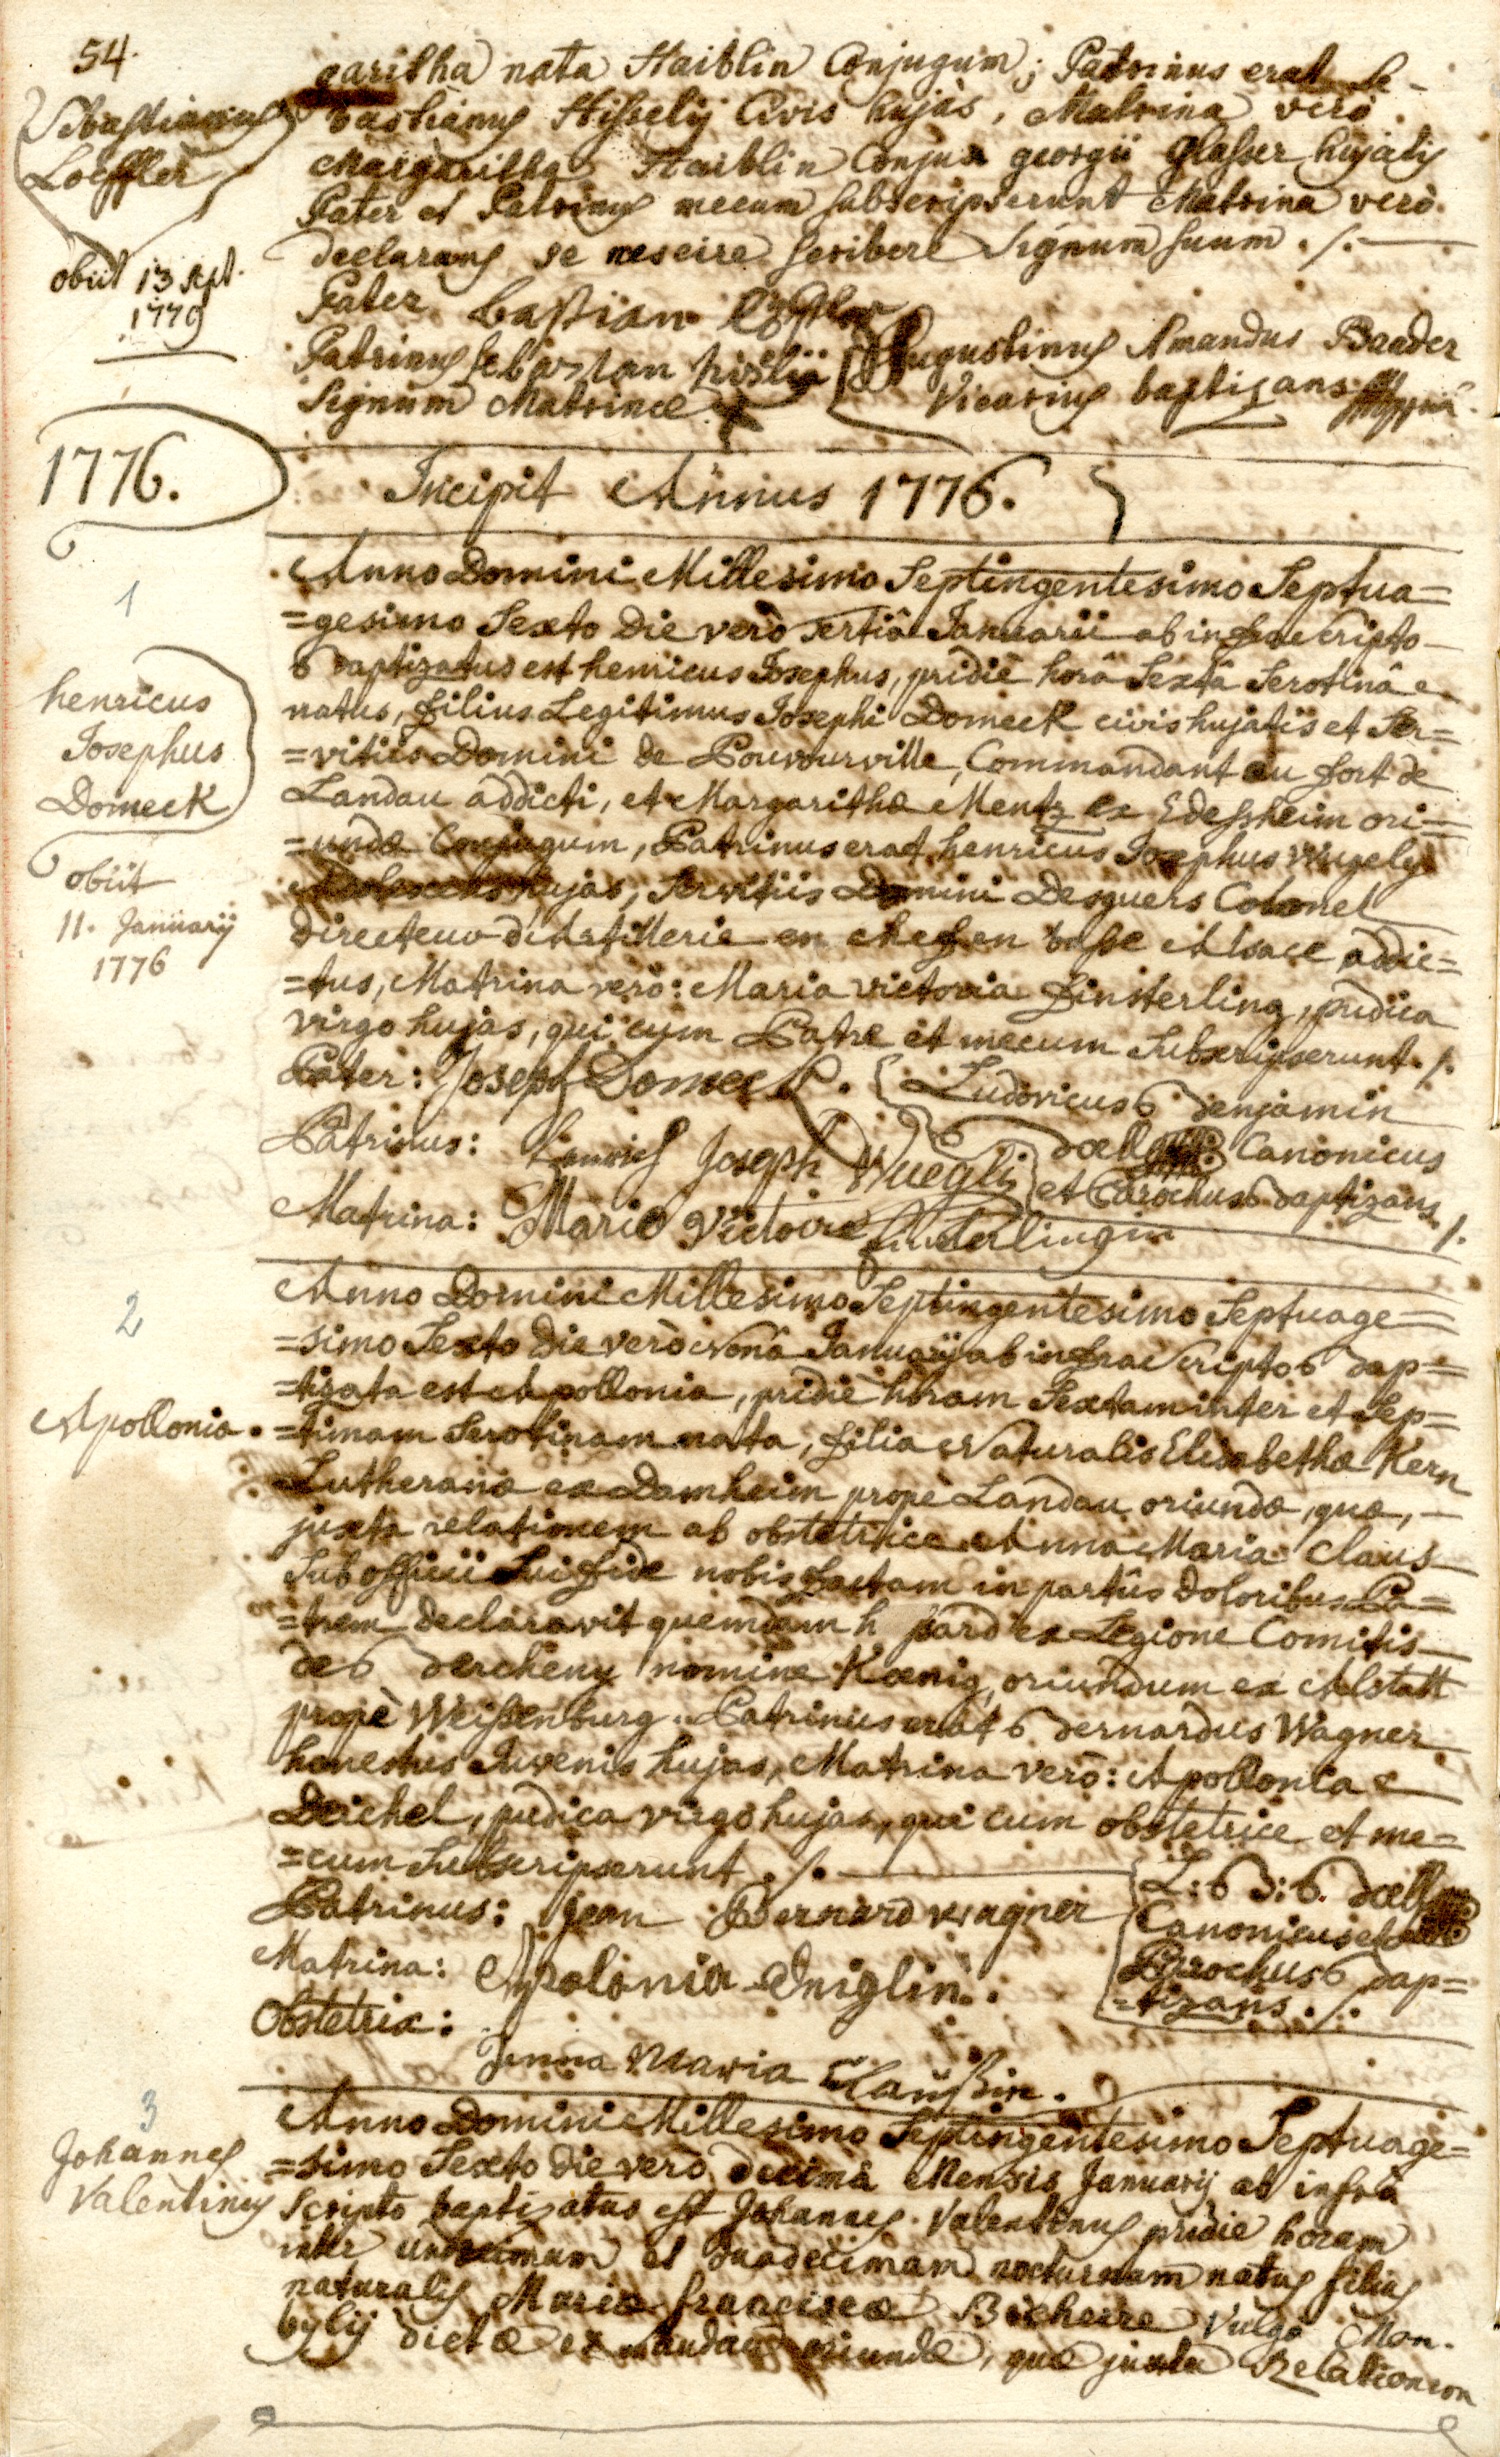 54.
Sebastianus
Loeffler
obiit 13 sept.
1779
garitha nata Haiblin Conjugum; Patrinus erat Se-
bastianus Hisselij Civis hujàs, Matrina verò
Margaritha Haiblin Conjux georgii Glasser hujatis
Pater et Patrinus mecum subscripserunt Matrina verò
declarans se nescire scribere signum suum ./.
Pater bastian
Patrinus sebastan hislij
Augustinus Amandus Baader
Vicarius baptizans
Signum Matrinae x
1776.
Incipit Annus 1776.
1
henricus
Josephus
Domeck
obiit
11. Januarij
1776
Anno Domini Millesimo Septingentesimo Septua=
=gesimo Sexto die verò tertiâ Januarii ab infra scripto
baptizatus est henricus Josephus, pridiè horâ Sextâ Serotinâ
natus, filius Legitimus Josephi Domeck civis hujatis et Ser=
=vitiis Domini de Pouvourville, Commandant au fort de
Landau addicti, et Margarithae Mentz ex Edessheim ori=
=undae Conjugum, Patrinus erat henricus Josephus Wugely
hujas, Servitiis Domini Desguers Colonel
directeur d'Artillerie en chef en basse Alsace addic=
=tus, Matrina verò: Maria Victoria Finsterling, pudica
virgo hujas, qui cum Patre et mecum Subscripserunt ./.
Pater: Joseph Domeck.
Ludovicus benjamin
Patrinus: Henrich Joseph Wuegli
doell Canonicus
et Parochus baptizans ./.
Matrina: Maria Victoire Finsterlingin
2
Apollonia.
Anno Domini Millesimo Septingentesimo Septuage=
=simo Sexto die verò Nonâ Januarij ab infra Scripto bap=
=tizata est Apollonia, pridiè horam Sextam inter et Sep=
=timam Serotinam nata, filia Naturalis Elisabethae Kern
Lutheranae ex Damheim propè Landau oriundae, quae,
juxta relationem ab obstetrice Anna Maria Claus
Sub officii Sui fide nobis factam in partûs doloribus Pa=
=trem declaravit quemdam ex Legione Comitis
de bercheny nomine Koenig, oriundum ex Alstatt
propè Weissenburg. Patrinus erat bernardus Wagner
honestus Juvenis hujas, Matrina verò: Apollonia
Deichel, pudica virgo hujas, qui cum obstetrice et me=
=cum Subscripserunt ./.
Patrinus: Jean Bernard wagner
L: b: doell
Canonicus et
Parochus bap=
=tizans ./.
Matrina: Apolonia
Obstetrix:
Anna Maria Claußin.
3
Johannes
Valentinus
Anno Domini Millesimo Septingentesimo Septuage=
=simo Sexto die verò decimâ Mensis Januarij ab infrà
Scripto baptizatus est Johannes Valentinus pridie horam
inter undecimam et duodecimam nocturnam natus filius
naturalis Mariae franciscae Bicheire Vulgò Mon-
bylij dictae ex Landau oriundae, quae juxta Relationem